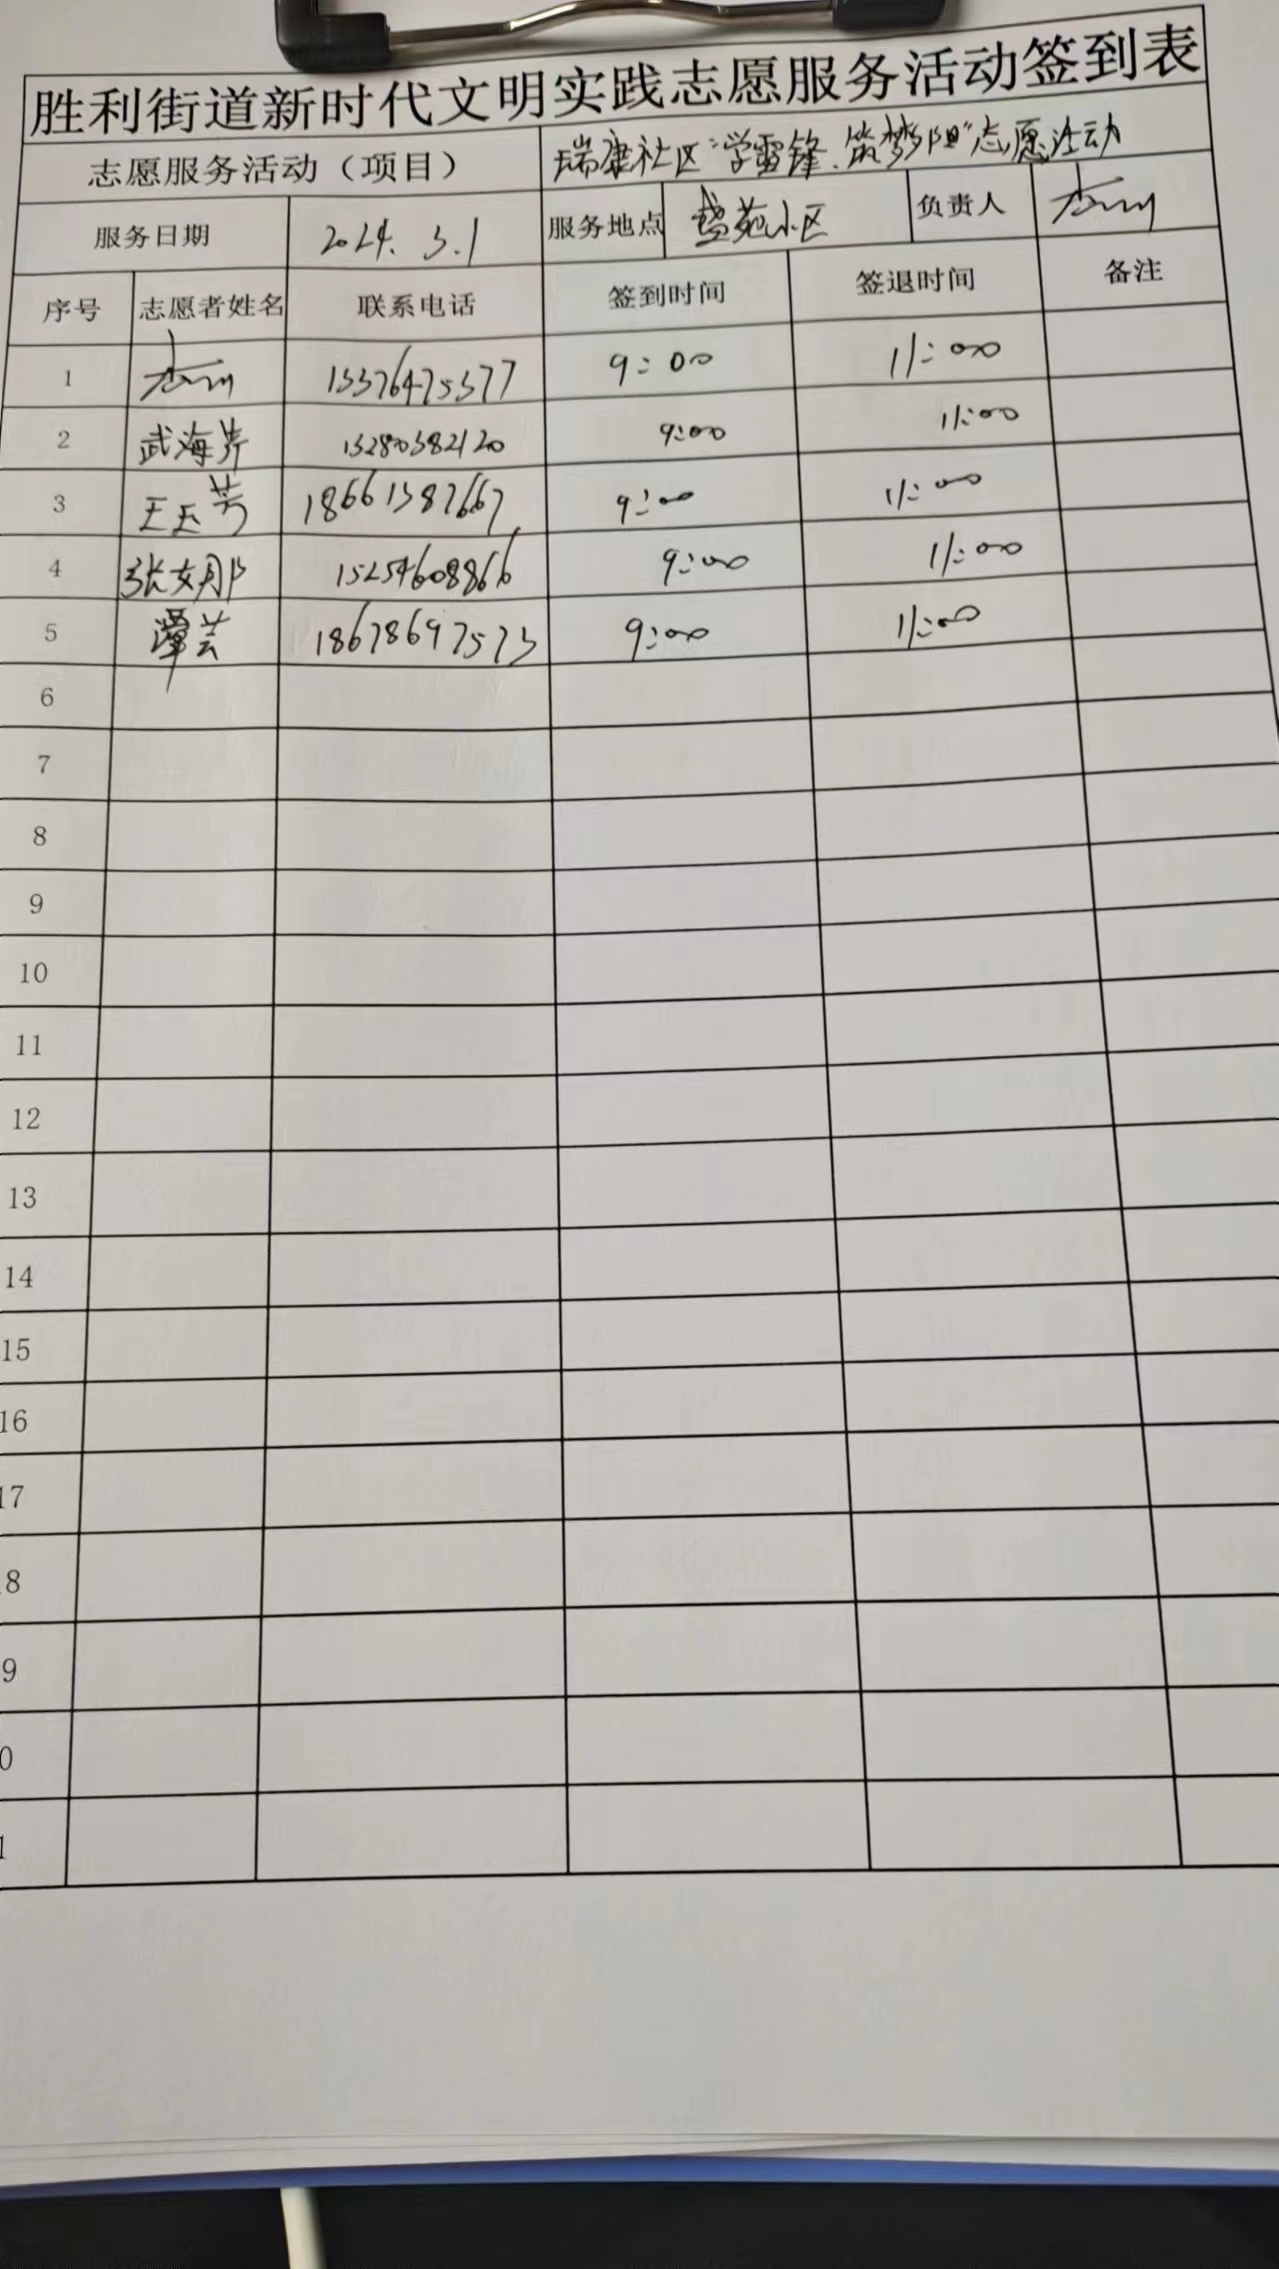 胜利街道新时代文明实践志愿服务活动签到表
志愿服务活动（项目） 瑞康社区“学雷锋、筑梦阳”志愿活动
服务日期 2024.3.1 服务地点 盛苑小区 负责人
序号 志愿者姓名 联系电话 签到时间 签退时间 备注
1 15376475377 9:00 11:00
2 武海芹 15280382120 9:00 11:00
3 王玉芳 18661387667 9:00 11:00
4 张文娜 15254608866 9:00 11:00
5 芸 18678697573 9:00 11:00
6
7
8
9
10
11
12
13
14
15
16
17
8
9
0
1